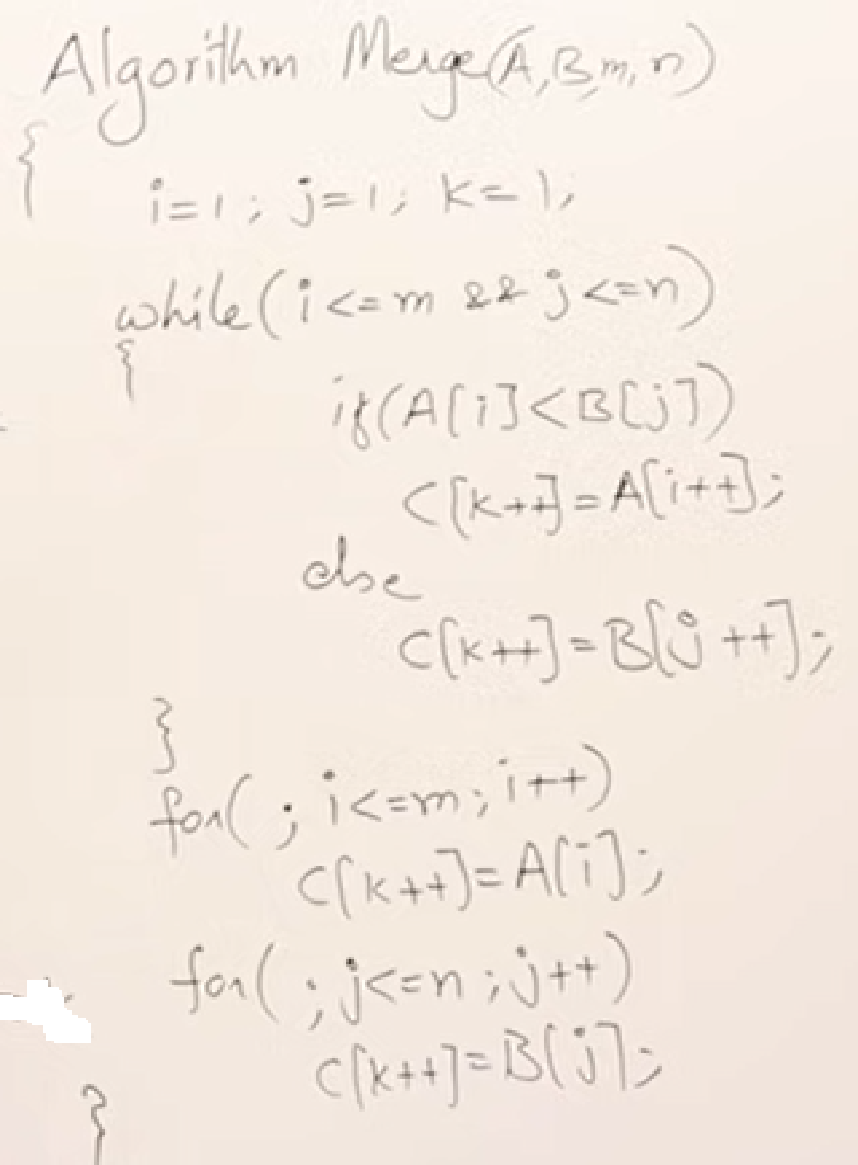 Algorithm Merge(A,B,m,n)
{
i=1; j=1; k=1;
while(i<=m && j<=n)
{
if(A[i]<B[j])
C[k++]=A[i++];
else
C[k++]=B[j++];
}
for( ; i<=m; i++)
C[k++]=A[i];
for( ; j<=n ; j++)
C[k++]=B[j];
}